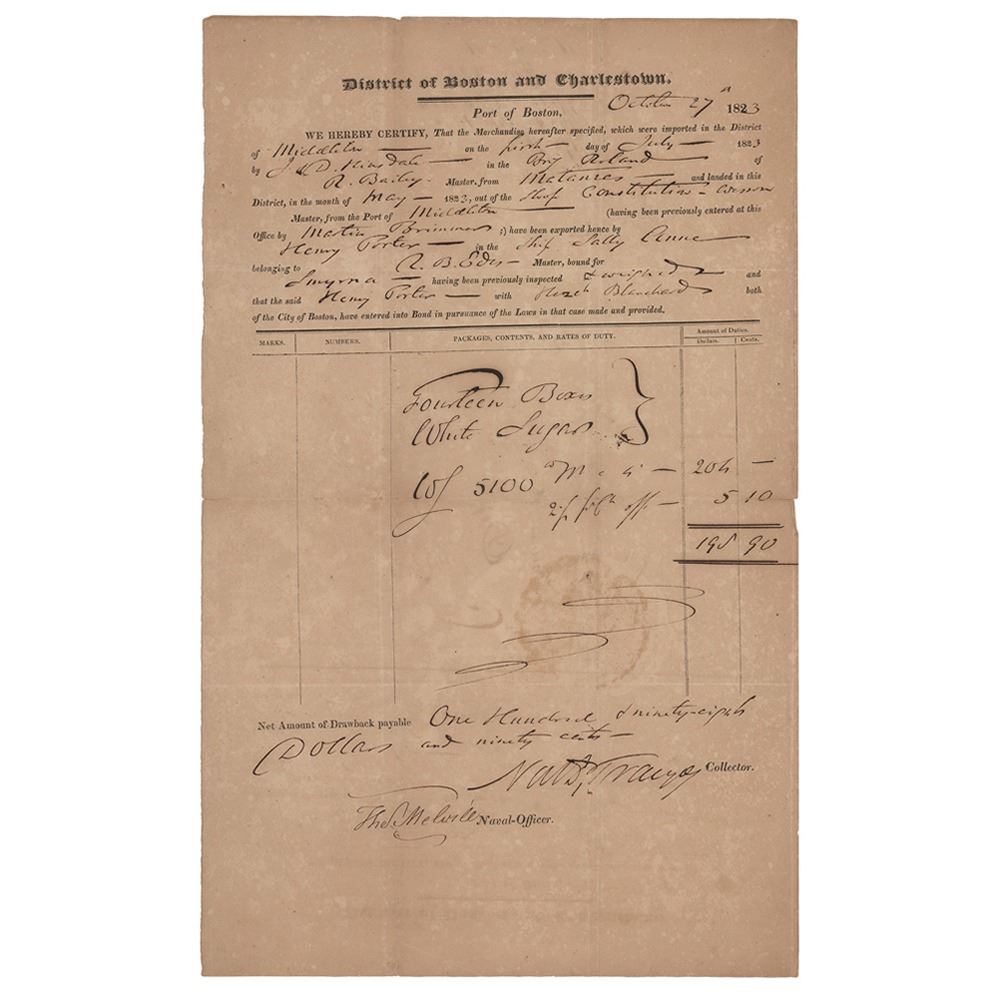 District of Boston and Charlestown.
Port of Boston, October 27th 1823
WE HEREBY CERTIFY, That the Merchandise hereafter specified, which were imported in the District
of Middleton on the first day of July 1823
by J & D. Kinsdale in the Brig Roland of
R. Bailey Master, from Matanzes and landed in this
District, in the month of May 1823, out of the Sloop Constitution
Master, from the Port of Middleton (having been previously entered at this
Office by Martin Brimmer ;) have been exported hence by
Henry Porter in the Ship Sally Anne
belonging to R. B. Edes Master, bound for
Smyrna having been previously inspected & weighed and
that the said Henry Porter with Hezh Blanchard both
of the City of Boston, have entered into Bond in pursuance of the Laws in that case made and provided.
MARKS. NUMBERS. PACKAGES, CONTENTS, AND RATES OF DUTY. Amount of Duties.
Dollars. Cents.
Fourteen Boxes
White Sugar
5100 204 —
off — 5 10
198 90
Net Amount of Drawback payable One Hundred & ninety-eight
Dollars and ninety cents —
Collector.
Thos. Melvill Naval-Officer.